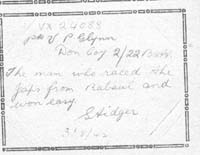 VX 24083
pte V P Glynn
Don Coy 2/22 Battn
The man who raced the
Japs from Rabaul and
won easy
3/8/42